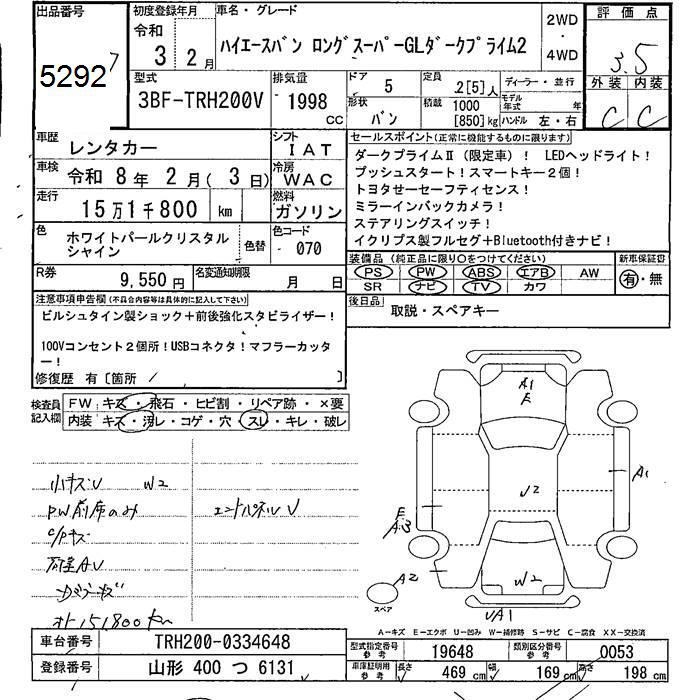 出品番号
5292
初度登録年月
令和
3 2月
車名・グレード
ハイエースバン ロングスーパーGLダークプライム2
2WD
・
4WD
評価点
3.5
外装 内装
C C
型式
3BF-TRH200V
排気量
1998
CC
ドア 5
形状 バン
定員 2[5]人
積載 1000
[850]kg
ディーラー・並行
モデル年式 年
ハンドル 左・右
車歴 レンタカー
シフト IAT
車検 令和 8年 2月( 3日)
冷房 WAC
走行 15万1千800 km
燃料 ガソリン
色 ホワイトパールクリスタル
シャイン
色替
色コード
070
R券 9,550円
名変通知期限
月 日
セールスポイント(正常に機能するものに限ります)
ダークプライムⅡ(限定車)! LEDヘッドライト!
プッシュスタート!スマートキー2個!
トヨタセーセーフティセンス!
ミラーインバックカメラ!
ステアリングスイッチ!
イクリプス製フルセグ+Bluetooth付きナビ!
装備品(純正品に限り○をつけてください)
PS PW ABS エアB AW
SR ナビ TV カワ
新車保証書
有・無
後日品 取説・スペアキー
注意事項申告欄(不具合内容等は具体的に記入して下さい)
ビルシュタイン製ショック+前後強化スタビライザー!
100Vコンセント2個所!USBコネクタ!マフラーカッタ
ー!
修復歴 有[箇所 / ]
検査員
記入欄
FW:キズ・飛石・ヒビ割・リペア跡・×要
内装:キズ・汚レ・コゲ・穴・スレ・キレ・破レ
小キズ・U W2
PW前席のみ
エンドパネルU
オト151800km
A1
E
A1
U2
E
A3
A2
W2
UA1
スペア
A-キズ E-エクボ U-凹み W-補修跡 S-サビ C-腐食 XX-交換済
車台番号 TRH200-0334648
登録番号 山形 400 つ 6131
型式指定番号
参考
19648
類別区分番号
参考
0053
車庫証明用
参考
長さ 469 cm 幅 169 cm 高さ 198 cm